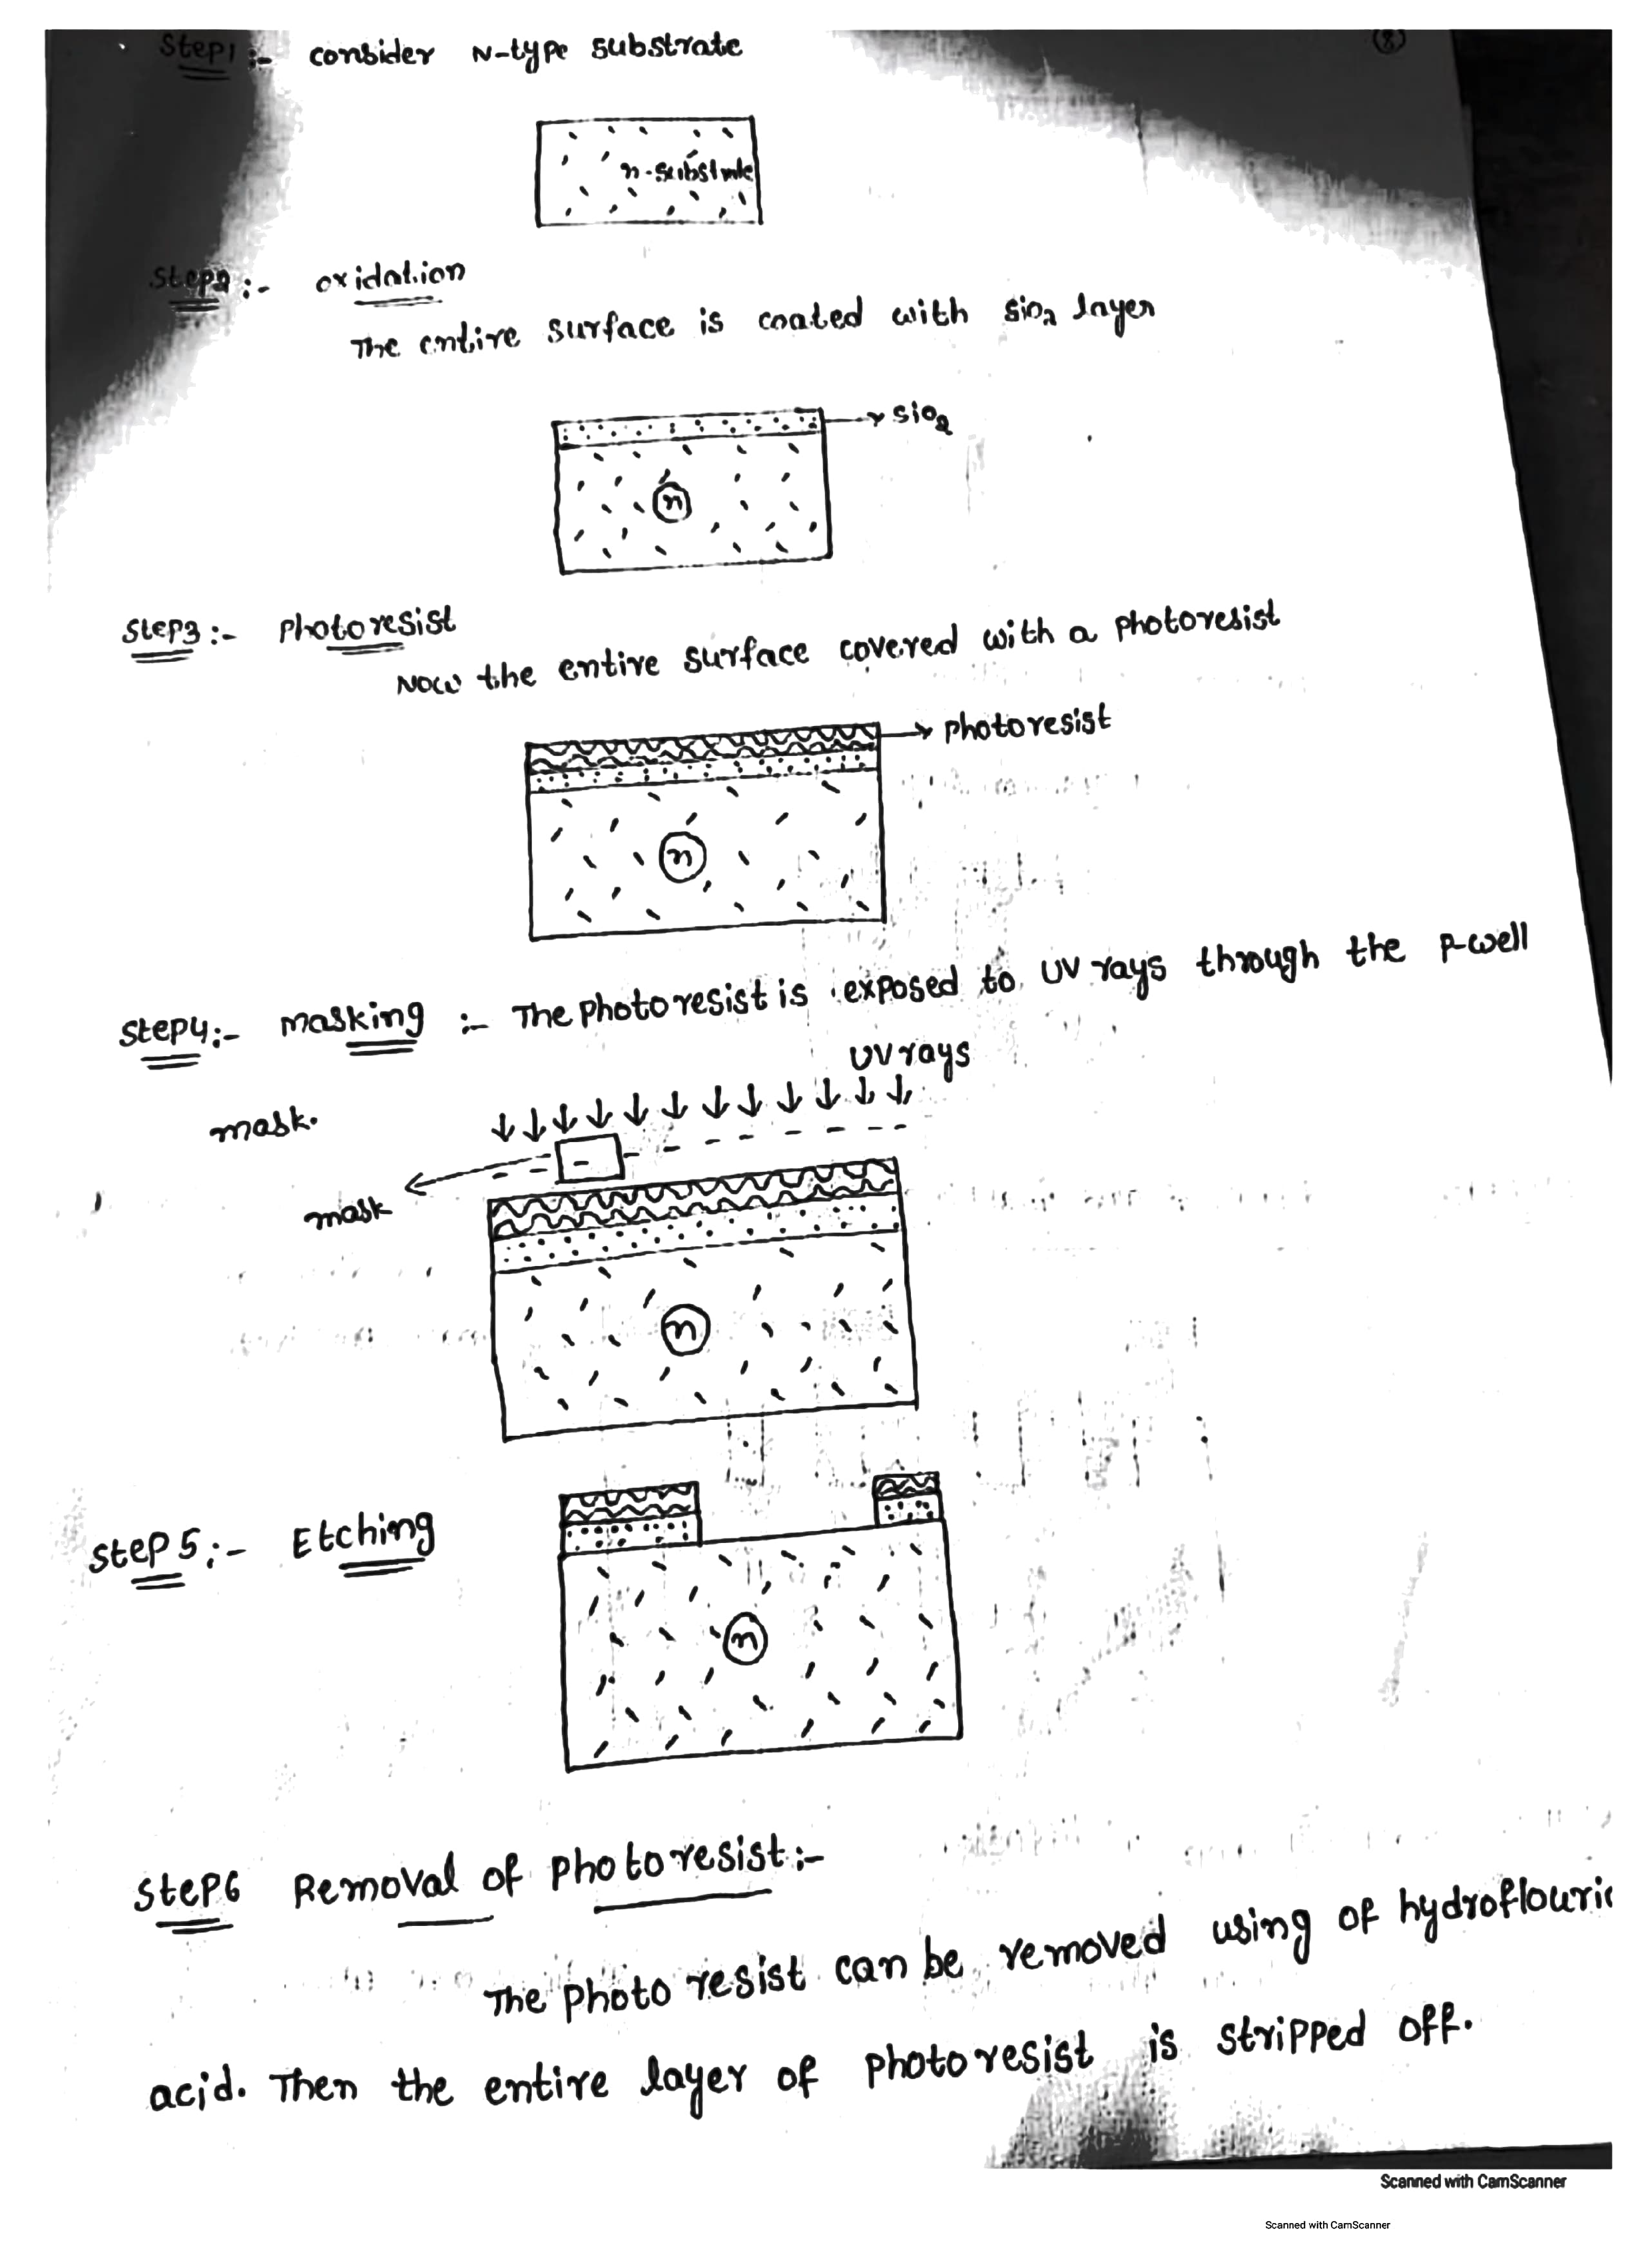 (8)
Step1 :- consider N-type substrate
n-substrate
Step2 :- oxidation
The entire surface is coated with sio2 layer
sio2
n
Step3 :- Photoresist
Now the entire surface covered with a photoresist
photoresist
n
Step4:- masking :- The photoresist is exposed to UV rays through the p-well
UV rays
mask.
mask
n
Step 5:- Etching
n
Step6 Removal of photoresist:-
The photo resist can be removed using of hydroflouric
acid. Then the entire layer of photoresist is stripped off.
Scanned with CamScanner
Scanned with CamScanner